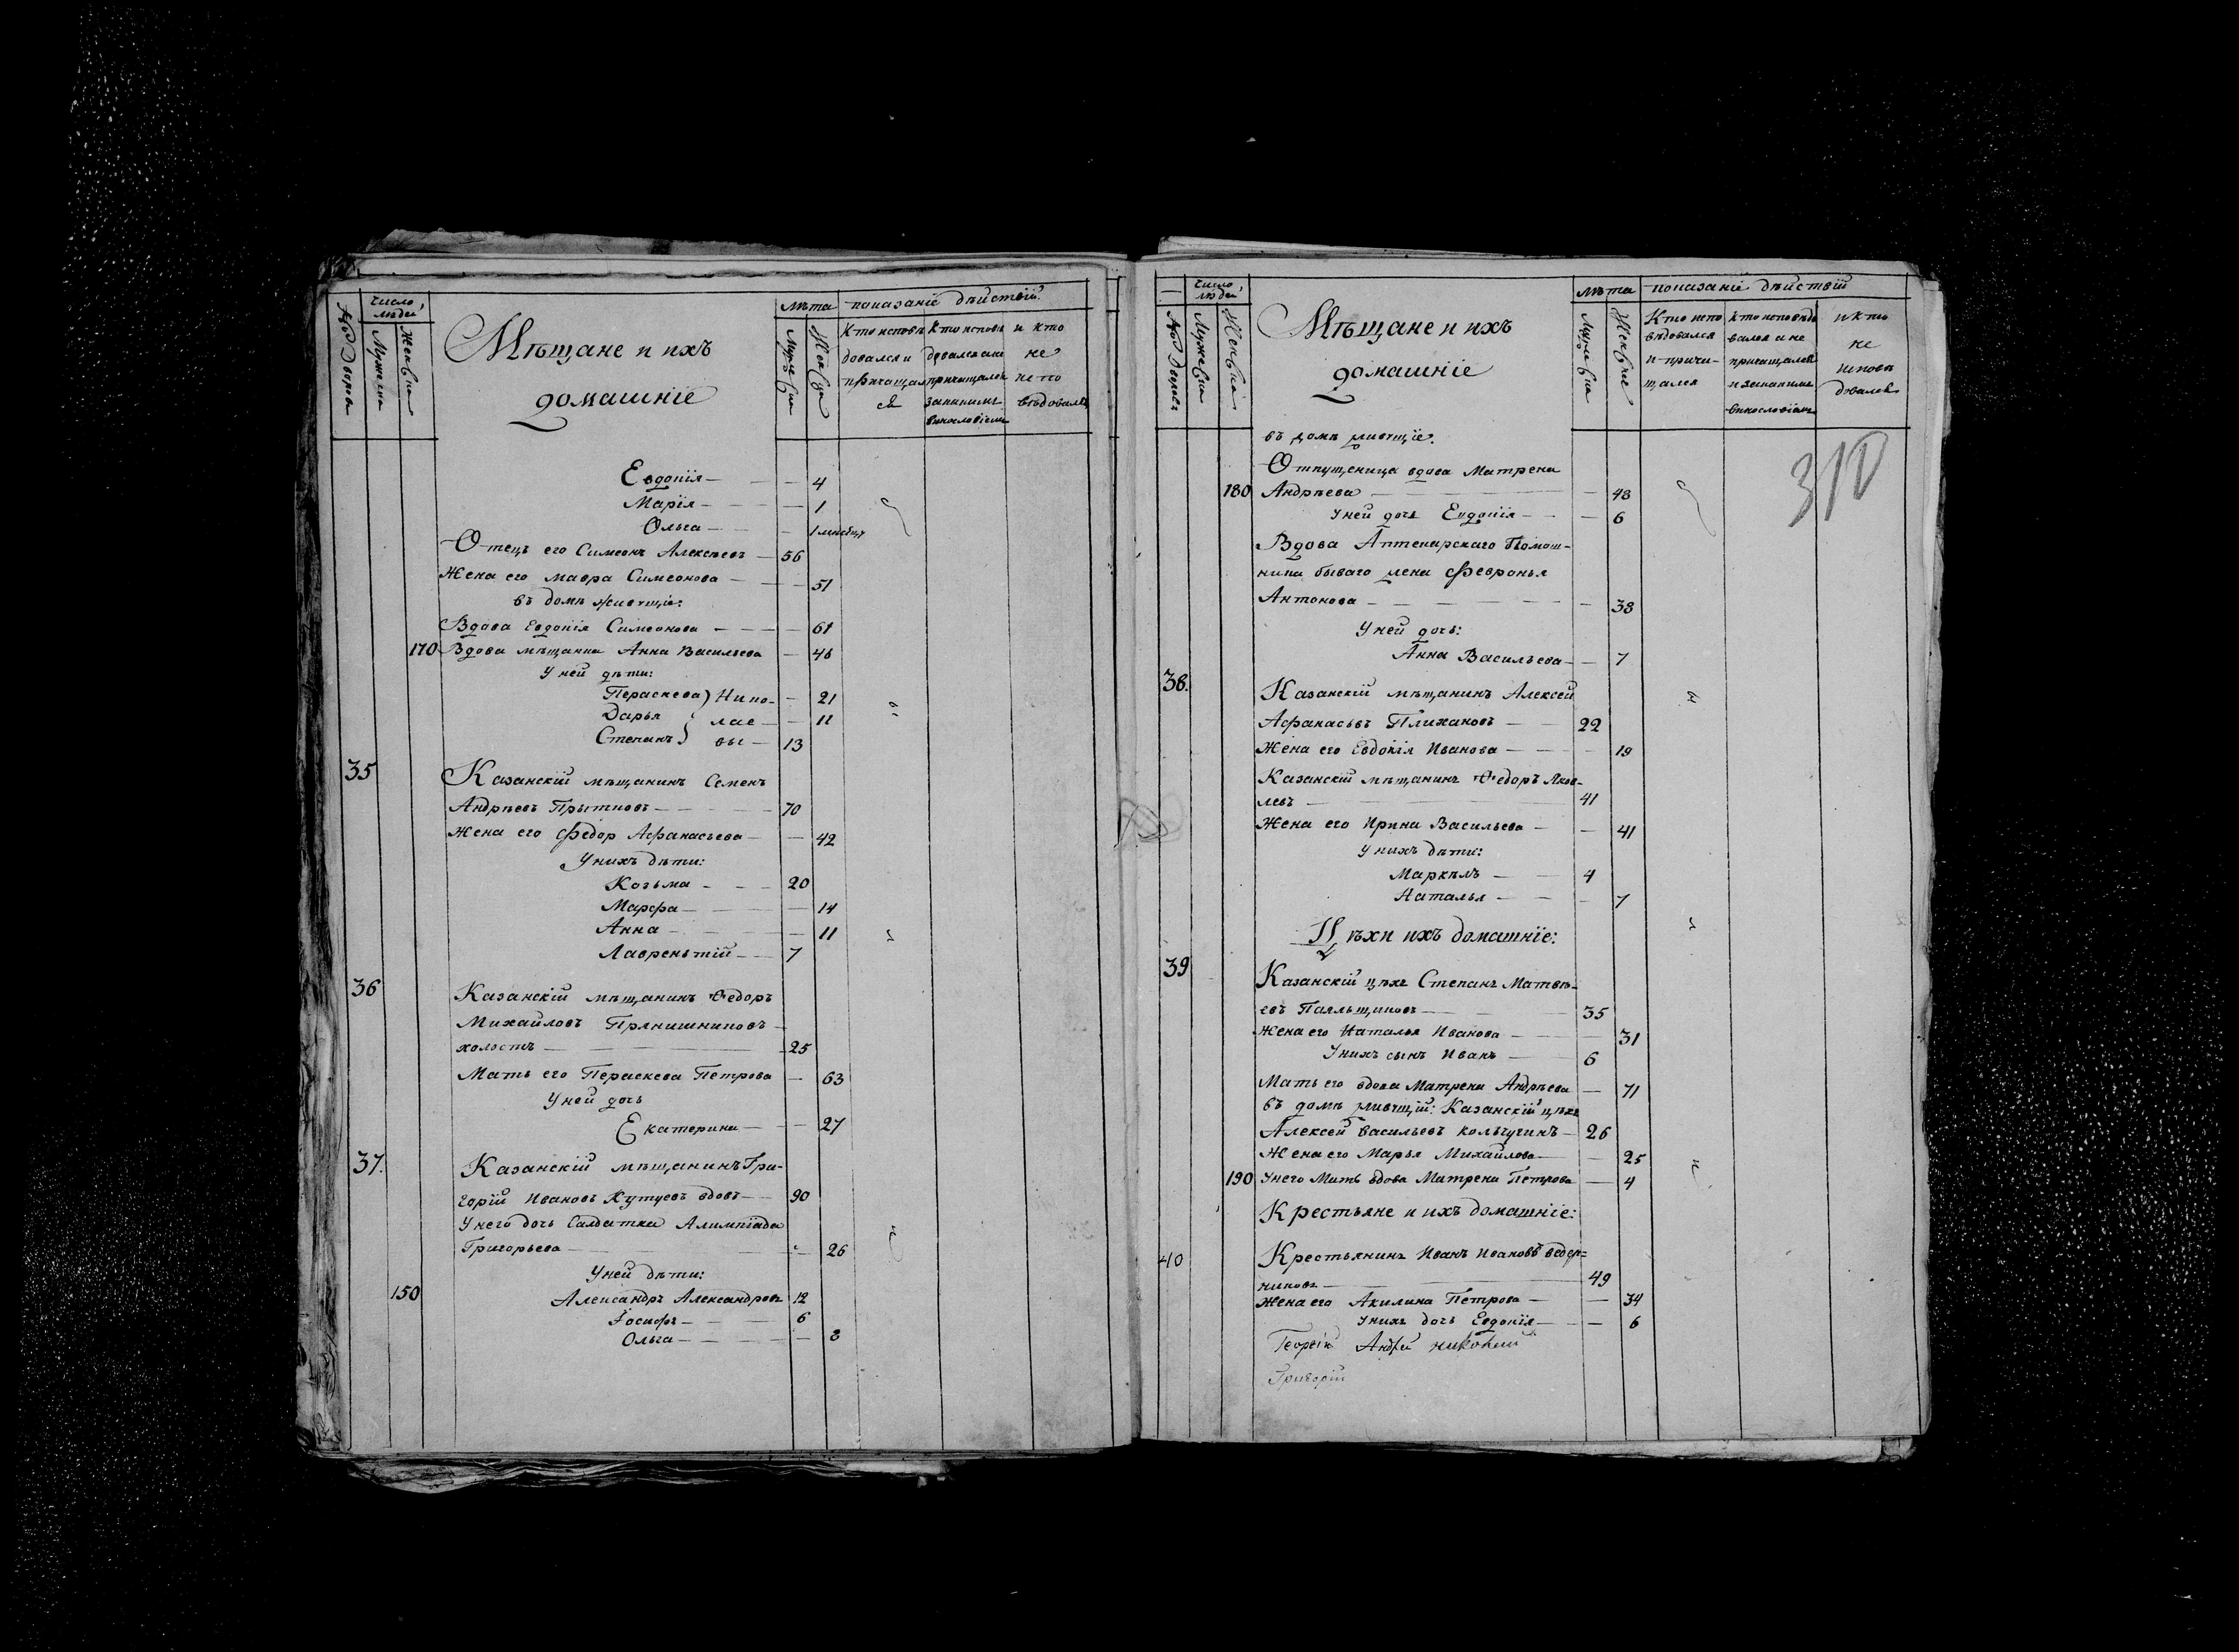 № Дворовъ
число людей
Мужеска
Женска
Мѣщане и ихъ
домашніе
лѣта
Мужеска
Женска
показаніе дѣйствій
Кто исповѣ
довался и
причащал
ся
кто исповѣ
довался а не
причащался
за какимъ
винословіемъ
и кто
не
испо
вѣдовался
Евдокія — — 4
Марія — — 1
Ольга — — 1 мѣсецъ
Отецъ его Симеонъ Алексѣевъ — 56
Жена его Мавра Симеонова — — 51
въ домѣ живущіе:
Вдова Евдокія Симеонова — — 61
170 Вдова мѣщанка Анна Васильева — 46
У ней дѣти:
Параскева ) Нико- — 21
Дарья } лае — — 11
Степанъ ) вы — 13
35 Казанскій мѣщанинъ Семенъ
Андрѣевъ Прытковъ — 70
Жена его Федор Афанасьева — — 42
У нихъ дѣти:
Козьма — — 20
Марфа — — 14
Анна — — 11
Лаврентій — — 7
36 Казанскій мѣщанинъ Ѳедоръ
Михайловъ Прянишниковъ —
холостъ — 25
Мать его Параскева Петрова — 63
У ней дочь
Екатерина — — 27
37. Казанскій мѣщанинъ Гри-
горій Ивановъ Кутуевъ вдовъ — 90
У него дочь Салдатка Алимпіада
Григорьева — 26
У ней дѣти:
150 Александръ Александровъ 12
Іосифъ — 6
Ольга — — 8
№ Дворовъ
число людей
Мужеска
Женска
Мѣщане и ихъ
домашніе
лѣта
Мужеска
Женске
показаніе дѣйствій
Кто испо
вѣдовался
и прича-
щался
кто исповѣдо
вался а не
причащался
и за какимъ
винословіемъ
и кто
не
исповѣ
довался
310
въ домѣ живущіе:
Отпущеница вдова Матрена
180 Андрѣева — — 48
У ней дочь Евдокія — — 6
Вдова Аптекарскаго Помош-
ника бываго жена Февронья
Антонова — — 38
У ней дочь:
Анна Васильева — — 7
38. Казанскій мѣщанинъ Алексѣй
Афанасьвъ Плихановъ — 22
Жена его Евдокія Иванова — — 19
Казанскій мѣщанинъ Ѳедоръ Яков-
левъ — 41
Жена его Ирина Васильева — — 41
У нихъ дѣти:
Маркѣлъ — 4
Наталья — — 7
Цѣхи ихъ домашніе:
39 Казанскій цѣхъ Степанъ Матвѣ-
евъ Паяльщиковъ — 35
Жена его Наталья Иванова — 31
У нихъ сынъ Иванъ — 6
Мать его вдова Матрена Андрѣева — 71
въ домѣ живущій: Казанскій цѣхъ
Алексей Васильевъ Кольчугинъ — 26
Жена его Марья Михайлова — — 25
190 У него Мать вдова Матрена Петрова — 4
Крестьяне и ихъ домашніе:
40 Крестьянинъ Иванъ Ивановъ Ведер-
никовъ — 49
Жена его Акилина Петрова — — 34
У нихъ дочь Евдокія — — 6
Георгій Андрей николай
Григорій